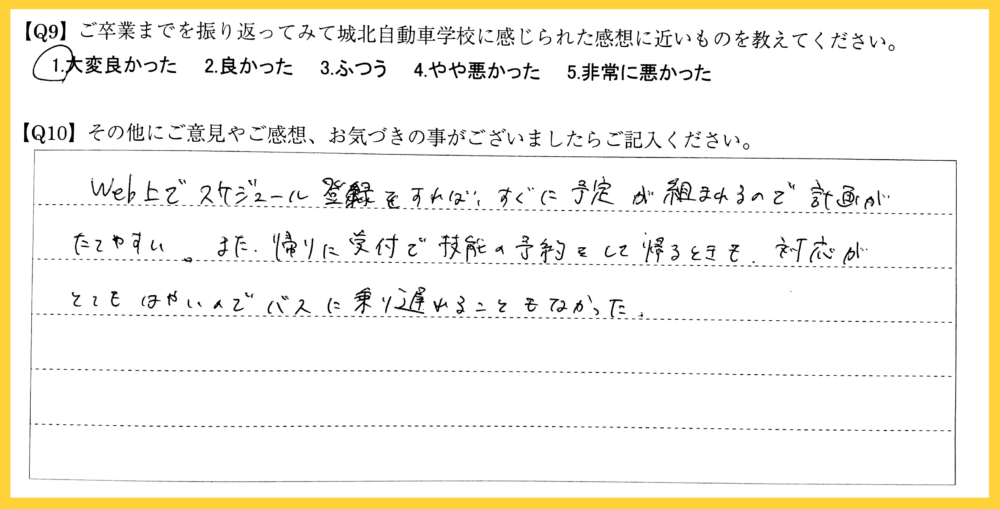 【Q9】ご卒業までを振り返ってみて城北自動車学校に感じられた感想に近いものを教えてください。
1.大変良かった 2.良かった 3.ふつう 4.やや悪かった 5.非常に悪かった
【Q10】その他にご意見やご感想、お気づきの事がございましたらご記入ください。
Web上でスケジュール登録をすれば、すぐに予定が組まれるので計画が
たてやすい。また、帰りに受付で技能の予約をして帰るときも、対応が
とてもはやいのでバスに乗り遅れることもなかった。